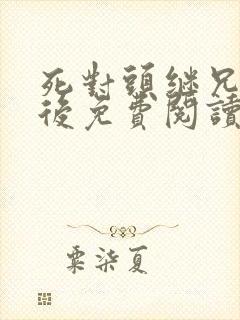 死對頭繼兄
後免費閱讀
粟柒夏